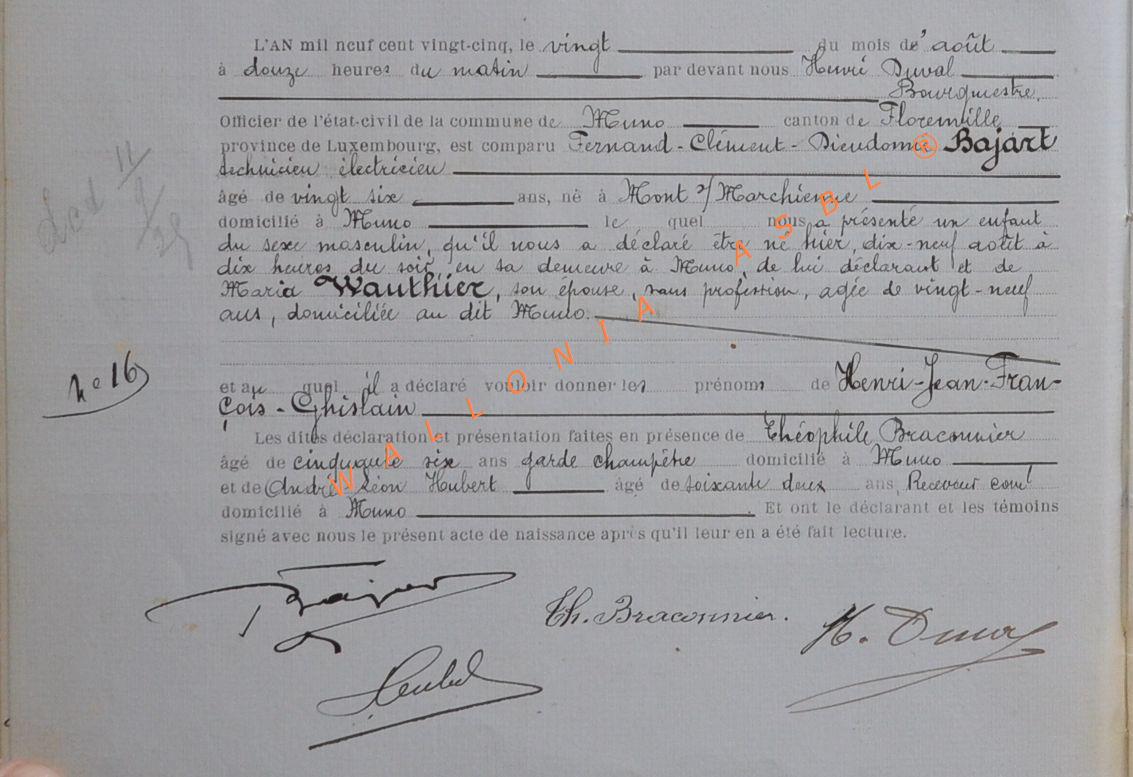 L'AN mil neuf cent vingt-cinq, le vingt du mois de août
à douze heures du matin par devant nous Henri Duval
Bourgmestre,
Officier de l'état-civil de la commune de Muno canton de Florenville
province de Luxembourg, est comparu Fernand-Clément-Dieudonné Bajart
technicien électricien
âgé de vingt six ans, né à Mont s/Marchienne
domicilié à Muno le quel nous a présenté un enfant
du sexe masculin, qu'il nous a déclaré être né hier, dix-neuf août à
dix heures du soir, en sa demeure à Muno, de lui déclarant et de
Maria Wauthier, son épouse, sans profession, agée de vingt-neuf
ans, domiciliée au dit Muno.
n° 16
et au quel il a déclaré vouloir donner les prénoms de Henri-Jean-Fran-
çois-Ghislain
Les dites déclaration et présentation faites en présence de Théophile Braconnier
âgé de cinquante six ans garde champêtre domicilié à Muno
et de André Léon Hubert âgé de soixante deux ans, Receveur com^l
domicilié à Muno. Et ont le déclarant et les témoins
signé avec nous le présent acte de naissance après qu'il leur en a été fait lecture.
Th. Braconnier.
H. Duval
WALLONIA ASBL ®